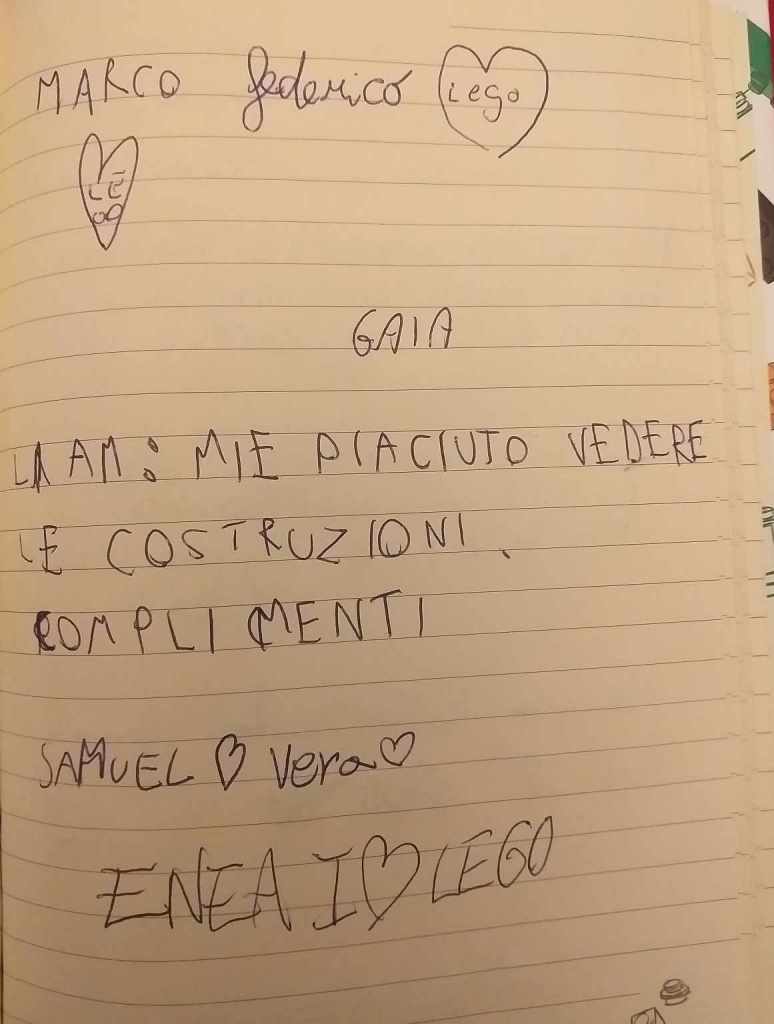 MARCO federico Lego
LE
OG
GAIA
LAAM: MIE PIACIUTO VEDERE
LE COSTRUZIONI.
COMPLIMENTI
SAMUEL ♡ Vera ♡
ENEA I ♡ LEGO